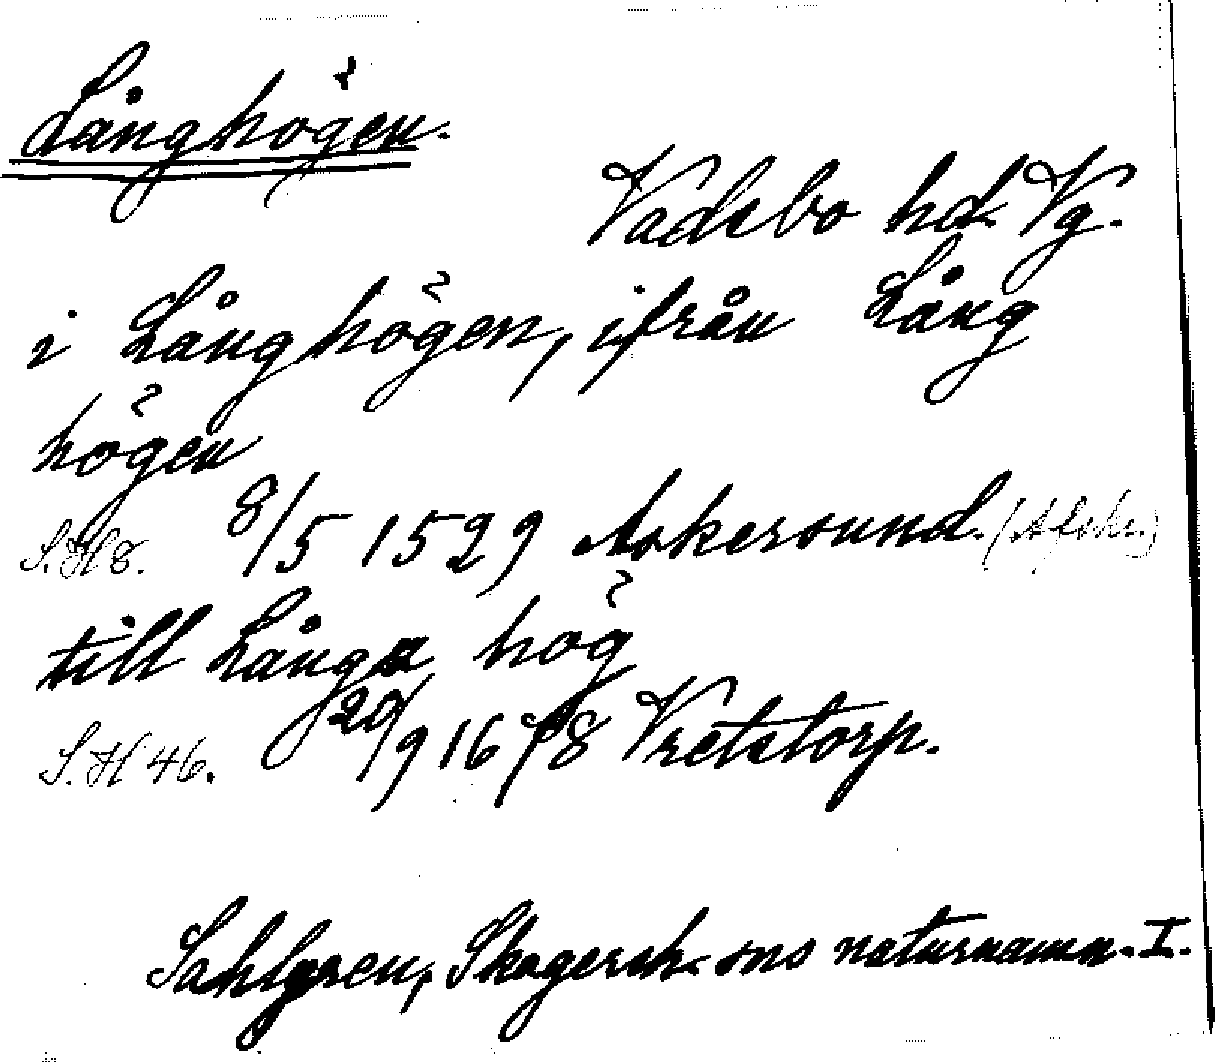 Långhögen.
Vadsbo hd. Vg.
i Långhögen, ifrån Lång
högen
S.H 8. 8/5 1529 Askersund. (Afskr.)
till Långa hög
S.H 46. 20/9 1678 Vretstorp.
Sahlgren, Skagersh. sns naturnamn. I.